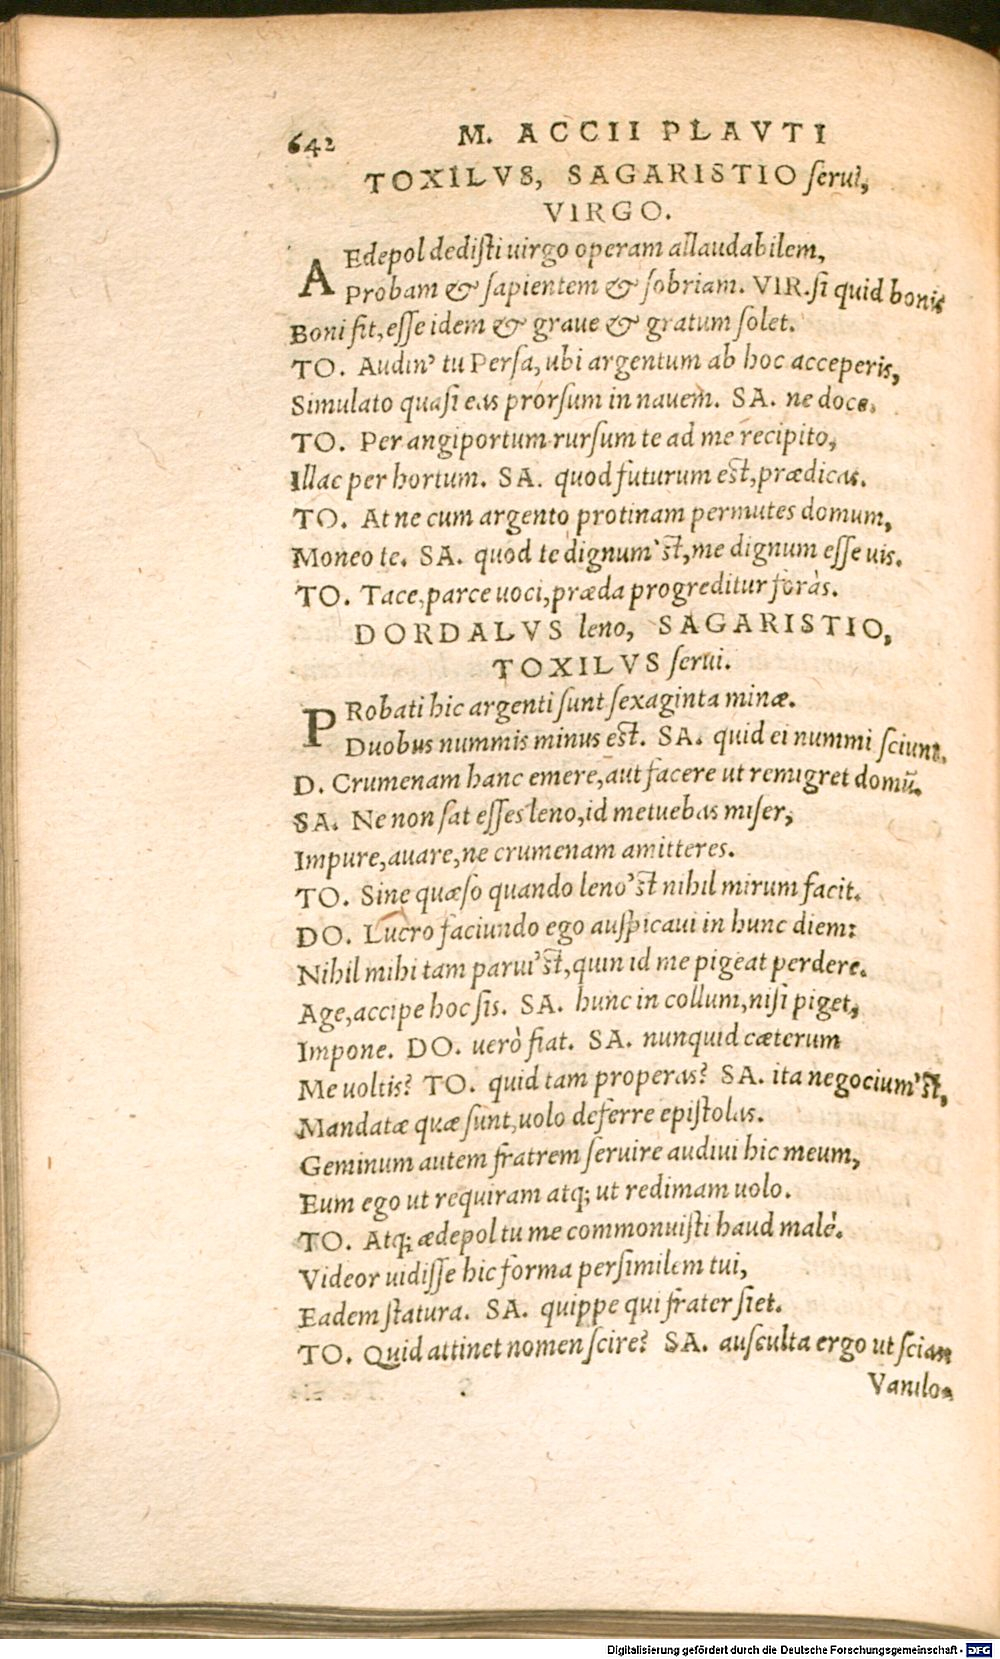 642 M. ACCII PLAVTI
TOXILVS, SAGARISTIO serui,
VIRGO.
AEdepol dedisti uirgo operam allaudabilem,
Probam & sapientem & sobriam. VIR. si quid bonis
Boni fit, esse idem & graue & gratum solet.
TO. Audin' tu Persa, ubi argentum ab hoc acceperis,
Simulato quasi eas prorsum in nauem. SA. ne doce.
TO. Per angiportum rursum te ad me recipito,
Illac per hortum. SA. quod futurum est, prædicas.
TO. At ne cum argento protinam permutes domum,
Moneo te. SA. quod te dignum'st, me dignum esse uis.
TO. Tace, parce uoci, præda progreditur foràs.
DORDALVS leno, SAGARISTIO,
TOXILVS serui.
PRobati hic argenti sunt sexaginta minæ.
Duobus nummis minus est. SA. quid ei nummi sciunt.
D. Crumenam hanc emere, aut facere ut remigret domū.
SA. Ne non sat esses leno, id metuebas miser,
Impure, auare, ne crumenam amitteres.
TO. Sine quæso quando leno'st nihil mirum facit.
DO. Lucro faciundo ego auspicaui in hunc diem:
Nihil mihi tam parui'st, quin id me pigeat perdere.
Age, accipe hoc sis. SA. hunc in collum, nisi piget,
Impone. DO. uerò fiat. SA. nunquid cæterum
Me uoltis? TO. quid tam properas? SA. ita negocium'st,
Mandatæ quæ sunt, uolo deferre epistolas.
Geminum autem fratrem seruire audiui hic meum,
Eum ego ut requiram atq; ut redimam uolo.
TO. Atq; ædepol tu me commonuisti haud malè.
Videor uidisse hic forma persimilem tui,
Eadem statura. SA. quippe qui frater siet.
TO. Quid attinet nomen scire? SA. ausculta ergo ut scias
Vanilo-
Digitalisierung gefördert durch die Deutsche Forschungsgemeinschaft - DFG